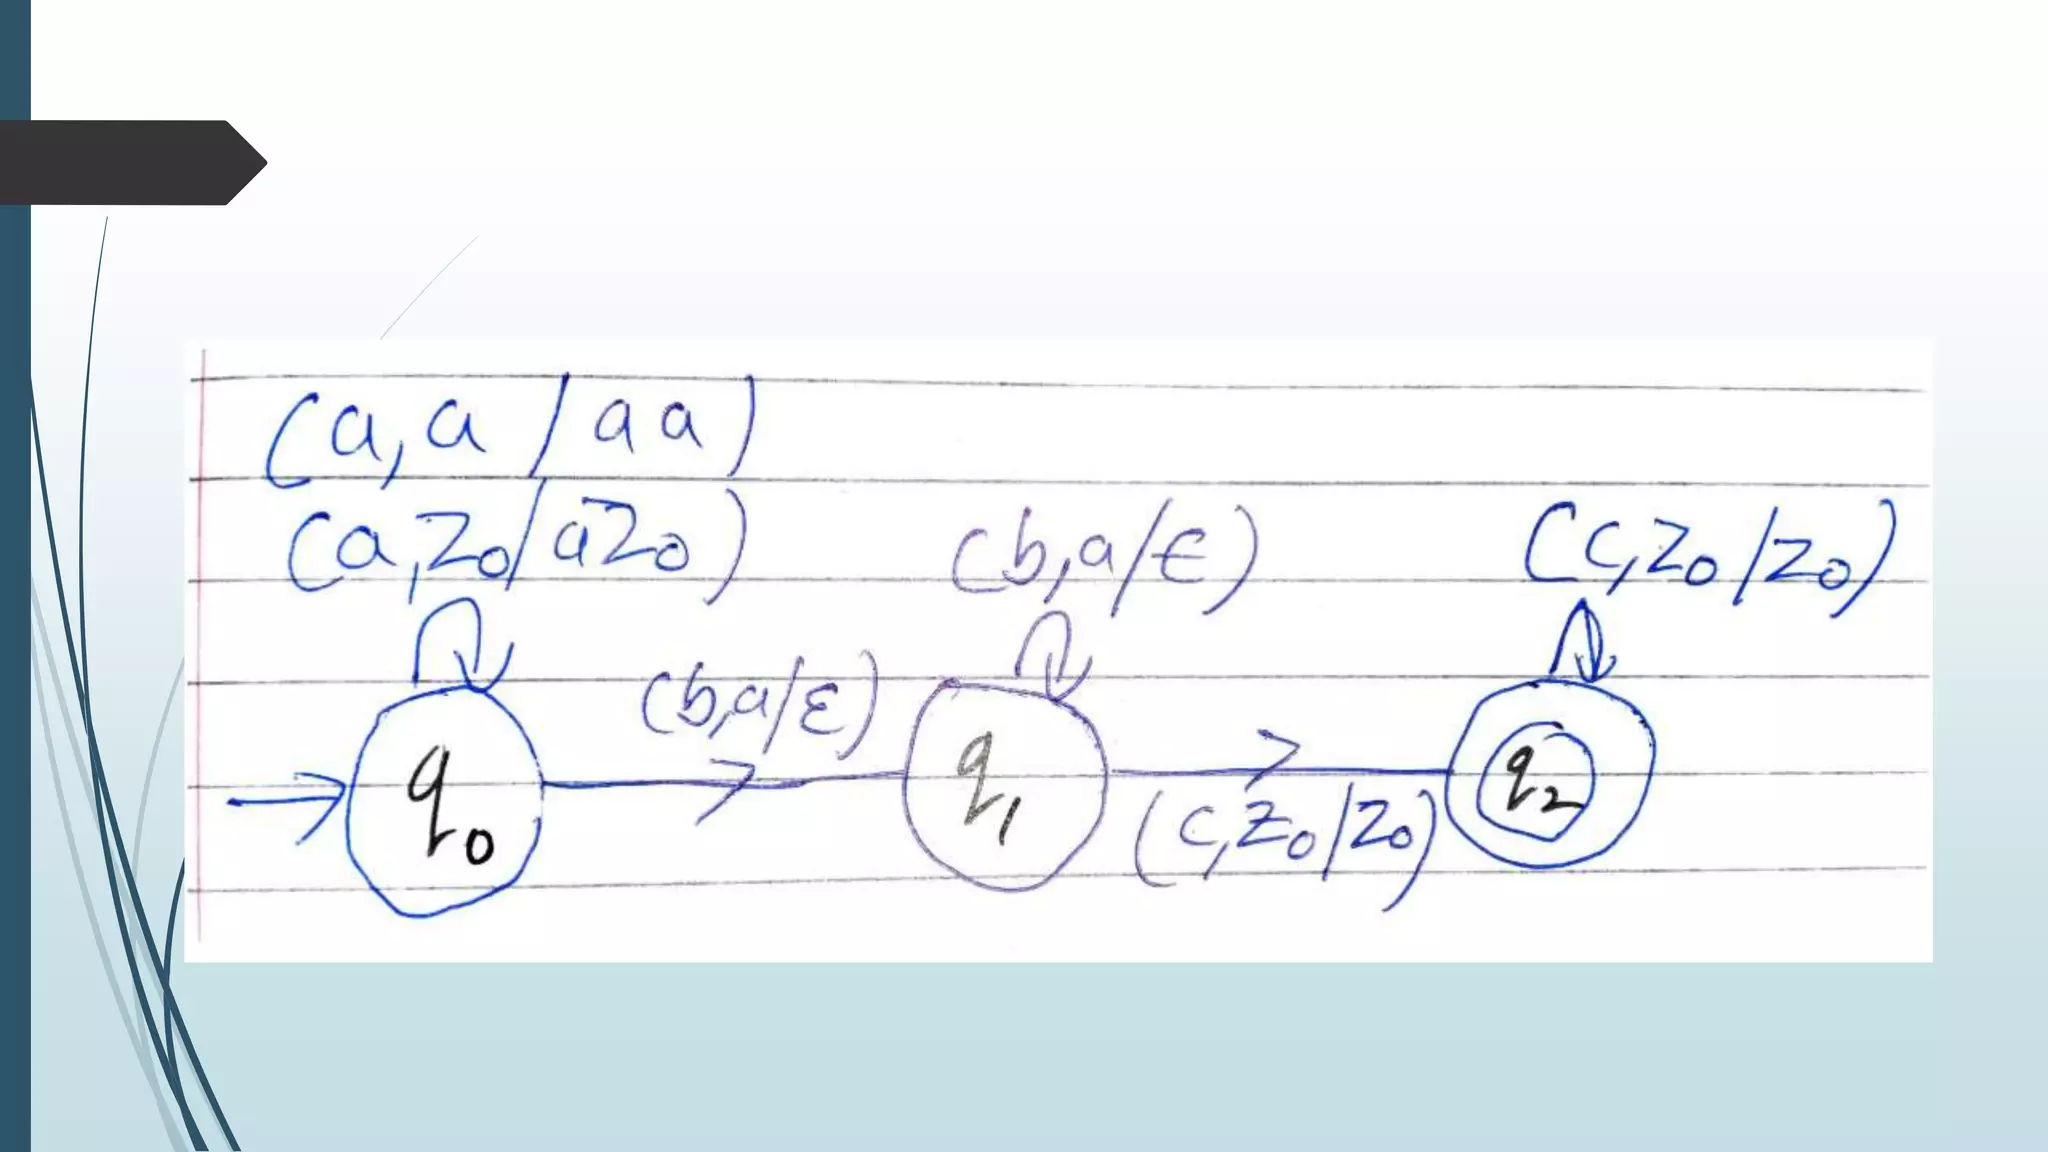 (a, a / aa)
(a, z0 / az0)
(b, a / ε)
(c, z0 / z0)
(b, a / ε)
q0
q1
q2
(c, z0 / z0)